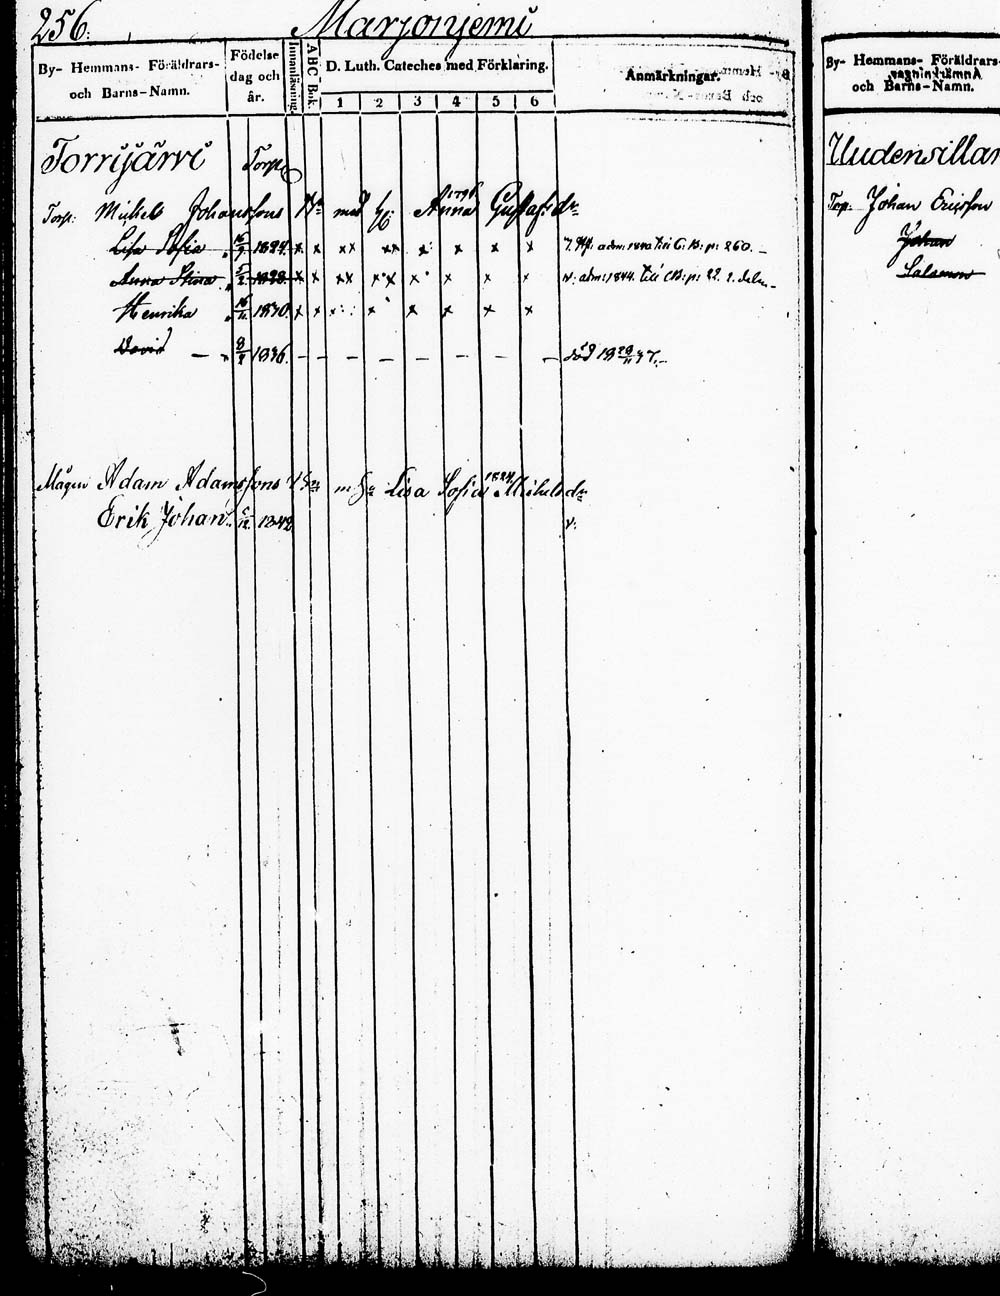 256.
Marjoniemi
By- Hemmans- Föräldrars- och Barns-Namn.
Födelse dag och år.
Innanläsning.
A B C-Bok.
D. Luth. Cateches med Förklaring.
1 2 3 4 5 6
Anmärkningar.
Torrijärvi Torp
Torp: Michels Johanssons med Anna 1796 Gustafs dr
Lisa Sofia 1824. x x xx xx x x x x
Anna Stina 1828. x x xx xx x x x x 1844. till CB: p: 22. 2. delen
Henrika 16/11 1830. x x x x x x x
David 8/2 1836. död 1837.
Mågen Adam Adamssons Lisa Sofia 1824 Michels dr
Erik Johan 1842
By- Hemmans- Föräldrars-
och Barns-Namn.
Uudensillan
Torp. Johan Ericsson
Johan
Salomon